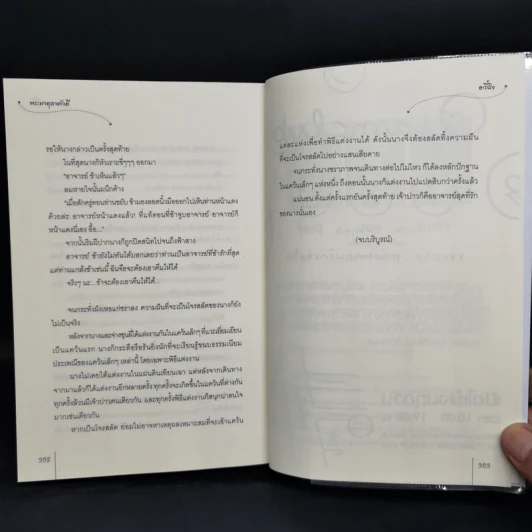 พระมาตุลาตัวดี
รอให้นางกล่าวเป็นครั้งสุดท้าย
ในที่สุดนางก็หัวเราะขี่ๆๆๆ ออกมา
"อาจารย์ ข้าเห็นแล้ว"
ลมหายใจนั้นมะนึกค้าง
"เมื่อสักครู่ตอนท่านขยับ ข้ามองลอดนิ้วมือออกไปเห็นท่านหน้าแดง
ด้วยล่ะ อาจารย์หน้าแดงแล้ว! ที่แท้ตอนที่ข้าจูบอาจารย์ อาจารย์ก็
หน้าแดงนี่เอง อื้อ..."
จากนั้นริมฝีปากนางก็ถูกปิดสนิทไปจนถึงฟ้าสาง
อาจารย์ ข้ายังไม่ทันได้บอกเลยว่าท่านเป็นอาจารย์ที่ข้ารักที่สุด
แต่ท่านแกล้งข้าเช่นนี้ ฉันจึงจะต้องเอาคืนให้ได้
จริงๆ นะ...ข้าจะต้องเอาคืนให้ได้...
จนกระทั่งฝังเหอแก่ชราลง ความฝันที่จะเป็นโจรสลัดของนางก็ยัง
ไม่เป็นจริง
หลังจากนางและจ่างชุนลี่ได้แต่งงานกันในแคว้นเล็กๆ ที่แวะเยี่ยมเยียน
เป็นแคว้นแรก นางก็กระตือรือร้นยิ่งนักที่จะเรียนรู้ขนบธรรมเนียม
ประเพณีของแคว้นเล็กๆ เหล่านี้ โดยเฉพาะพิธีแต่งงาน
นางไม่เคยได้แต่งงานในแผ่นดินเทียนเฉา แต่หลังจากเดินทาง
จากมาแล้วก็ได้แต่งงานอีกหลายครั้ง ทุกครั้งจะเกิดขึ้นในแคว้นที่ต่างกัน
ทุกครั้งล้วนมีเจ้าบ่าวคนเดียวกัน และทุกครั้งพิธีแต่งงานก็สนุกน่าสนใจ
มากเช่นเดียวกัน
หากเป็นโจรสลัด ย่อมไม่อาจหาเหตุผลเหมาะสมที่จะเข้าแคว้น
352
แต่ละแห่งเพื่อทำพิธีแต่งงานได้ ดังนั้นนางจึงต้องสลัดทิ้งความฝัน
ที่จะเป็นโจรสลัดไปอย่างแสนเสียดาย
จนกระทั่งนางชราภาพจนเดินทางต่อไปไม่ไหว ก็ได้ลงหลักปักฐาน
ในแคว้นเล็กๆ แห่งหนึ่ง ถึงตอนนั้นนางก็แต่งงานไปแปดสิบกว่าครั้งแล้ว
แน่นอน ตั้งแต่ครั้งแรกยันครั้งสุดท้าย เจ้าบ่าวก็คืออาจารย์สุดที่รัก
ของนางนั่นเอง
(จบบริบูรณ์)
353